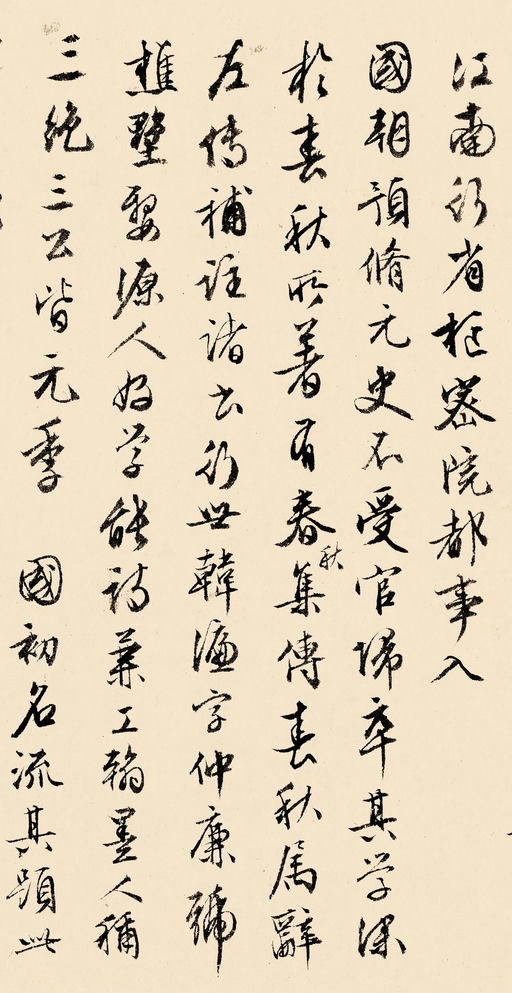 江南行省樞密院都事入
國朝預脩元史不受官歸卒其學深
於春秋所著有春秋集傳春秋屬辭
左傳補註諸書行世韓濂字仲廉號
樵墅婺源人好學能詩兼工翰墨人稱
三絶三公皆元季 國初名流其題此